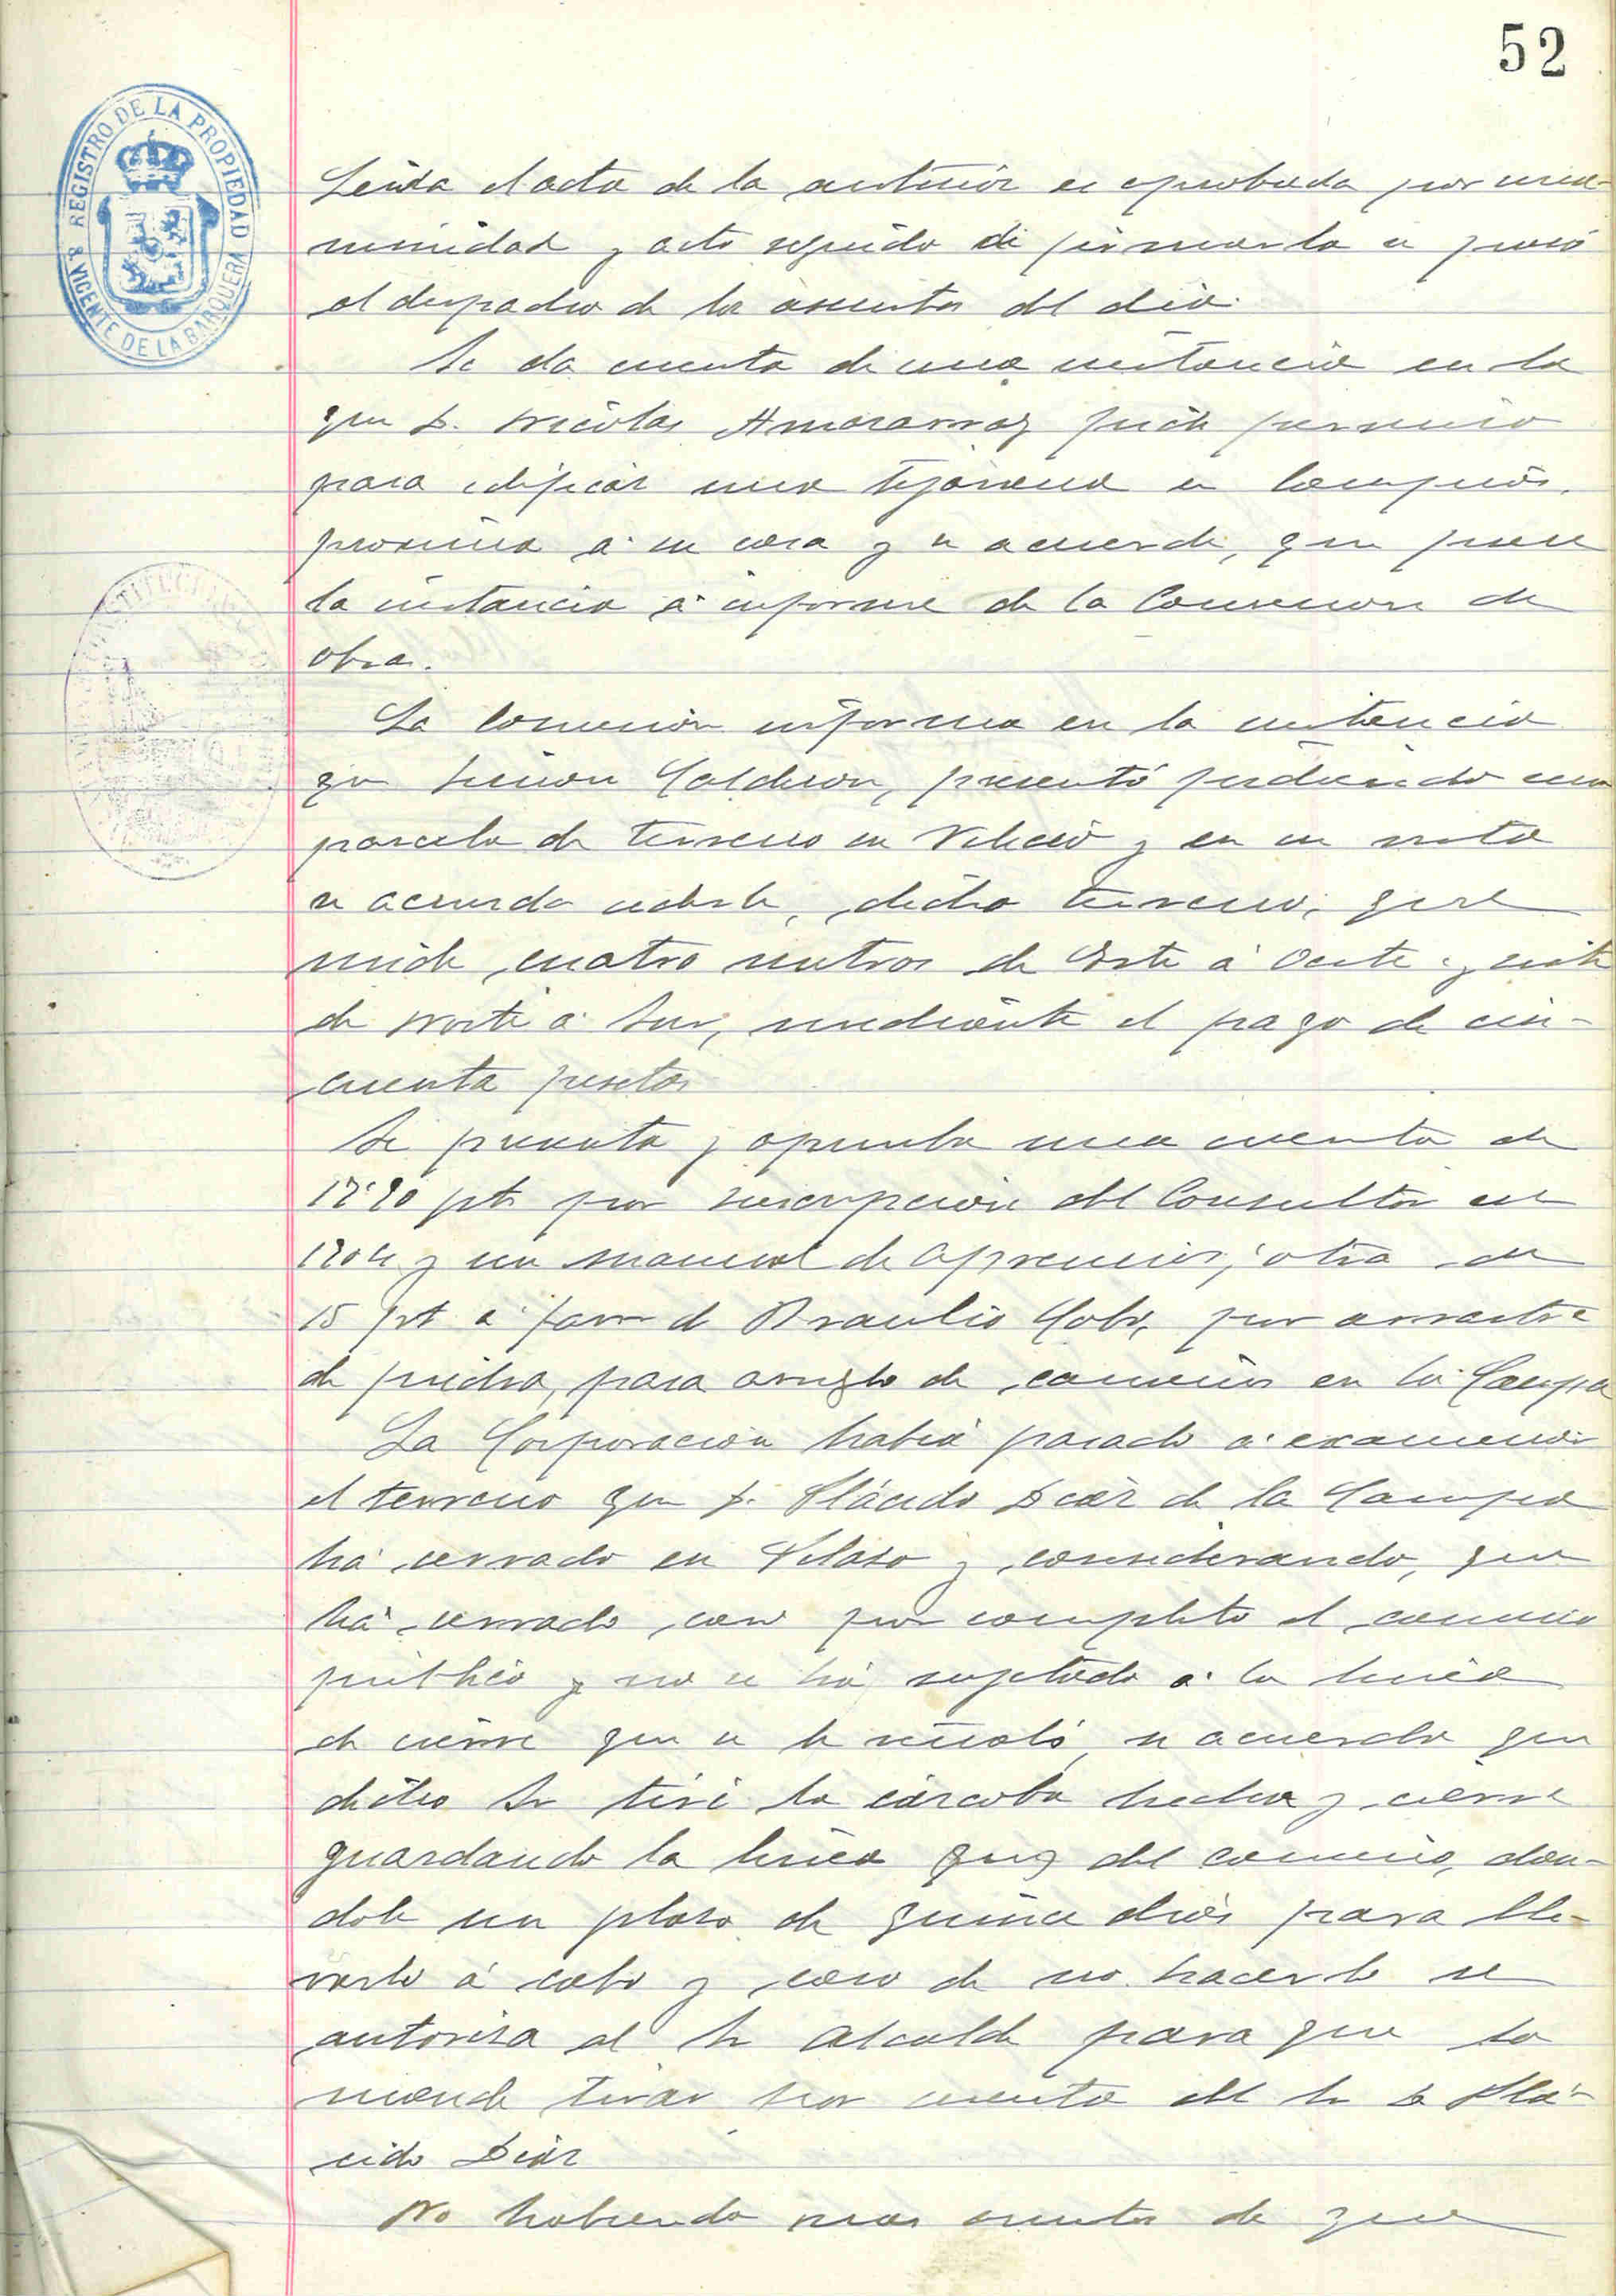 52
REGISTRO DE LA PROPIEDAD
S. VICENTE DE LA BARQUERA
Leida el acta de la anterior es aprobada por una-
nimidad y acto seguido de firmarla se pasó
al despacho de los asuntos del dia.
Se da cuenta de una instancia en la
que D. Nicolas pide permiso
para edificar una tejavana en
proxima á su casa y se acuerda, que pase
la instancia á informe de la Comision de
obras.
La Comision informa en la instancia
que Simon Calderon, presentó pidiendo una
parcela de terreno en y en su vista
se acuerda cederle, dicho terreno, que
mide cuatro metros de Este á Oeste y siete
de Norte á Sur, mediante el pago de cin-
cuenta pesetas
Se presenta y aprueba una cuenta de
pts por suscripción del Consultor en
1904 y un manual de apremios, otra de
15 pts á favor de Braulio Cobo, por arrastre
de piedra, para arreglo de caminos en la Campa
La Corporación habia pasado á examinar
el terreno que D. Plácido Diaz de la Campa
há cerrado en y considerando, que
há cerrado casi por completo el camino
público y no se há sujetado á la linea
de cierre que se le señaló, se acuerda que
dicho Sr tire la cárcoba hecha y cierre
guardando la linea del camino, dan-
dole un plazo de quince dias para lle-
varlo á cabo y caso de no hacerlo se
autoriza al Sr Alcalde para que la
mande tirar por cuenta del Sr D Plá-
cido Diaz
No habiendo mas asuntos de que